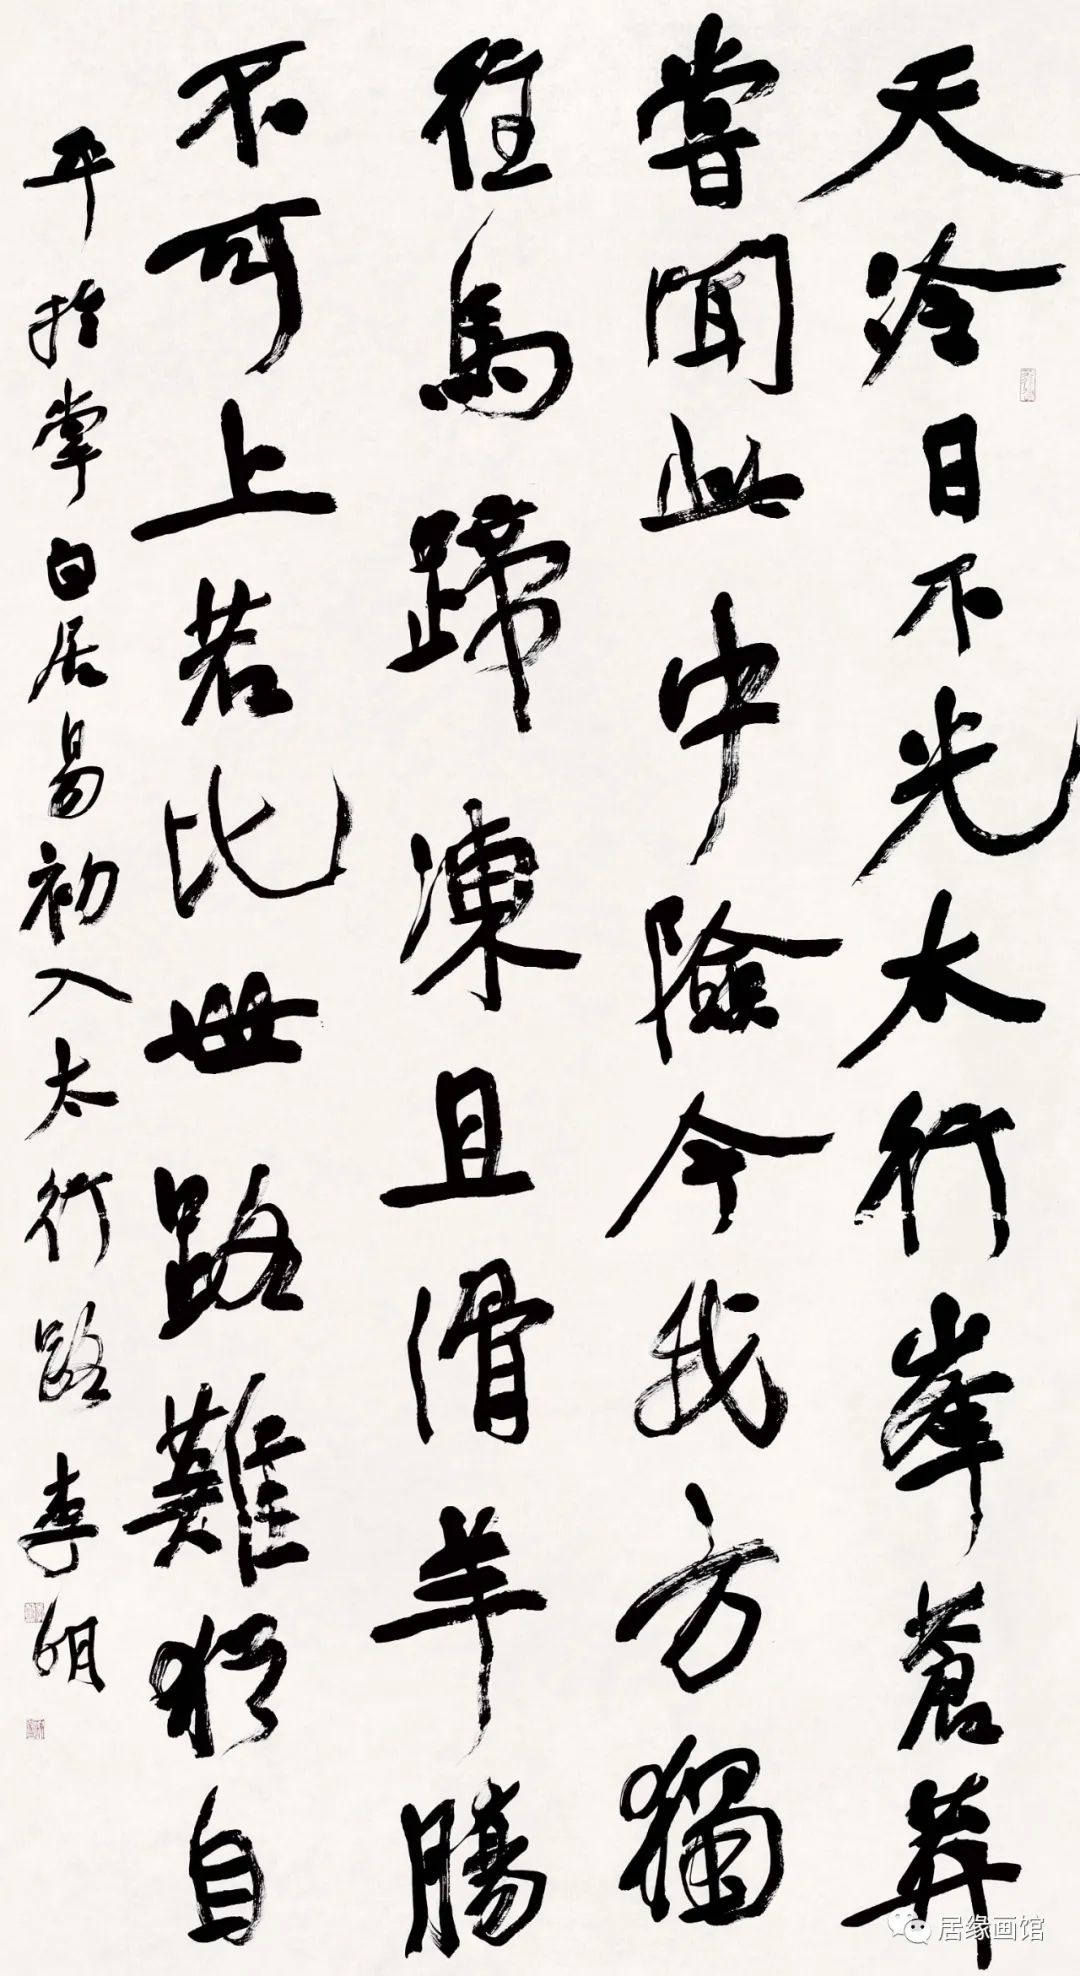 天冷日不光太行峯蒼莽
嘗聞此中險今我方獨
往馬蹄凍且滑羊腸
不可上若比世路難猶自
平扵掌白居易初入太行路李明
居缘画馆